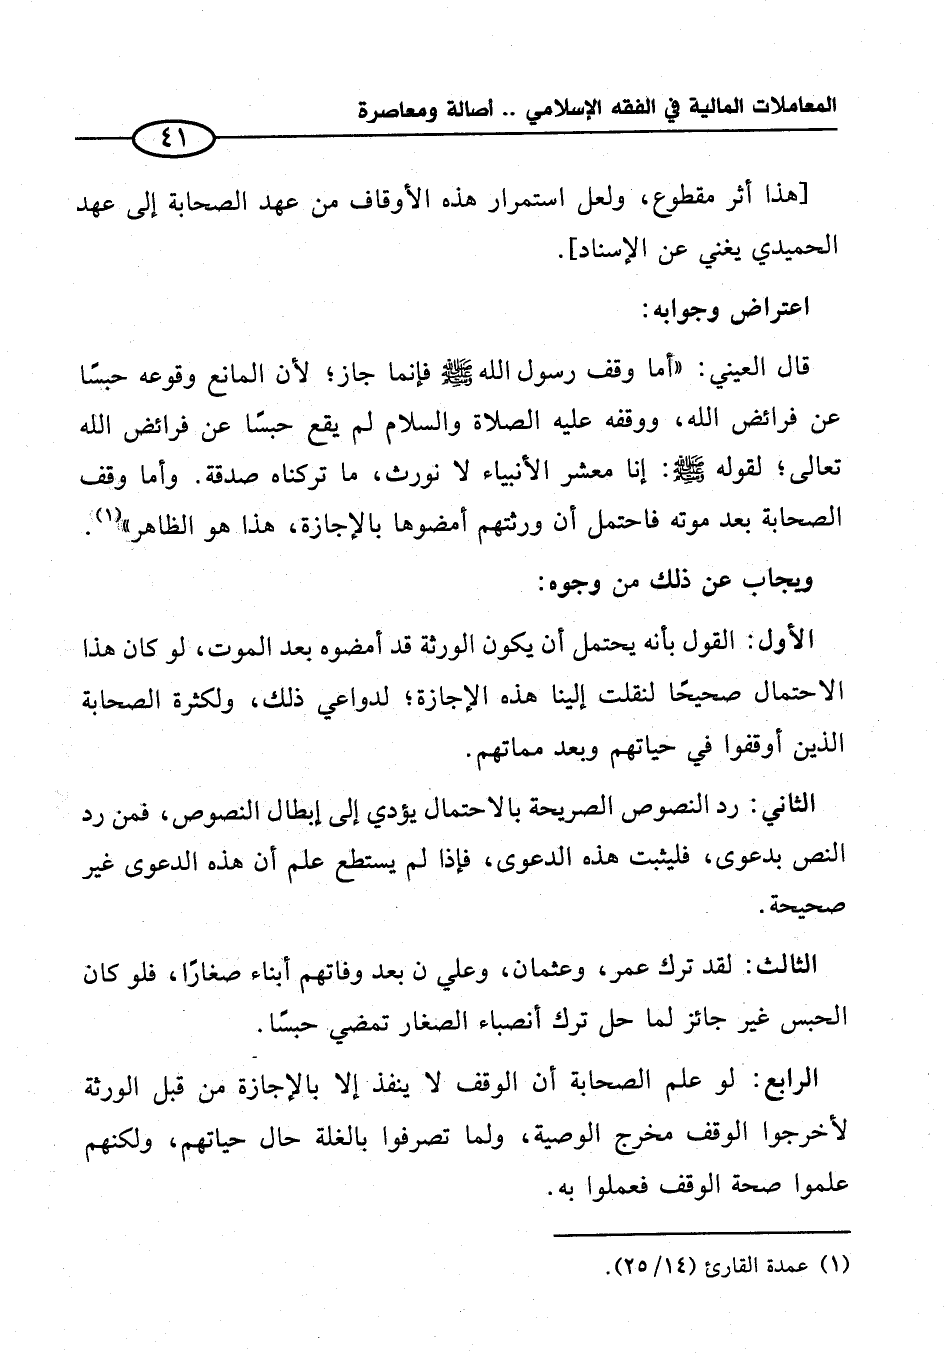 المعاملات المالية في الفقه الإسلامي .. أصالة ومعاصرة
٤١
[هذا أثر مقطوع، ولعل استمرار هذه الأوقاف من عهد الصحابة إلى عهد
الحميدي يغني عن الإسناد].
اعتراض وجوابه:
قال العيني: «أما وقف رسول الله ﷺ فإنما جاز؛ لأن المانع وقوعه حبسًا
عن فرائض الله، ووقفه عليه الصلاة والسلام لم يقع حبسًا عن فرائض الله
تعالى؛ لقوله ﷺ: إنا معشر الأنبياء لا نورث، ما تركناه صدقة. وأما وقف
الصحابة بعد موته فاحتمل أن ورثتهم أمضوها بالإجازة، هذا هو الظاهر»(١).
ويجاب عن ذلك من وجوه:
الأول: القول بأنه يحتمل أن يكون الورثة قد أمضوه بعد الموت، لو كان هذا
الاحتمال صحيحًا لنقلت إلينا هذه الإجازة؛ لدواعي ذلك، ولكثرة الصحابة
الذين أوقفوا في حياتهم وبعد مماتهم.
الثاني: رد النصوص الصريحة بالاحتمال يؤدي إلى إبطال النصوص، فمن رد
النص بدعوى، فليثبت هذه الدعوى، فإذا لم يستطع علم أن هذه الدعوى غير
صحيحة.
الثالث: لقد ترك عمر، وعثمان، وعلي ن بعد وفاتهم أبناء صغارًا، فلو كان
الحبس غير جائز لما حل ترك أنصباء الصغار تمضي حبسًا.
الرابع: لو علم الصحابة أن الوقف لا ينفذ إلا بالإجازة من قبل الورثة
لأخرجوا الوقف مخرج الوصية، ولما تصرفوا بالغلة حال حياتهم، ولكنهم
علموا صحة الوقف فعملوا به.
(١) عمدة القارئ (٢٥/١٤).